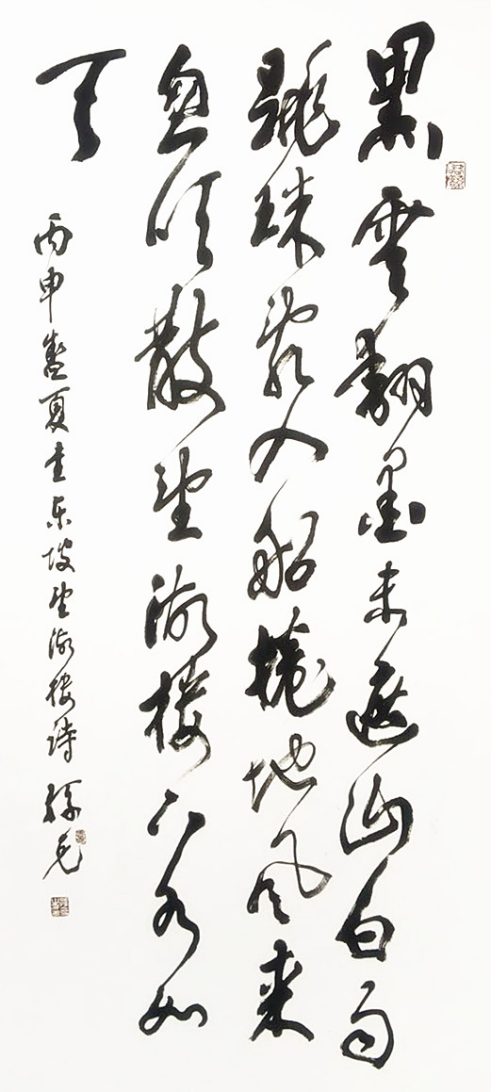 黑雲翻墨未遮山白雨
跳珠亂入船捲地風来
忽吹散望湖樓下水如
天
丙申盛夏書東坡望湖樓詩